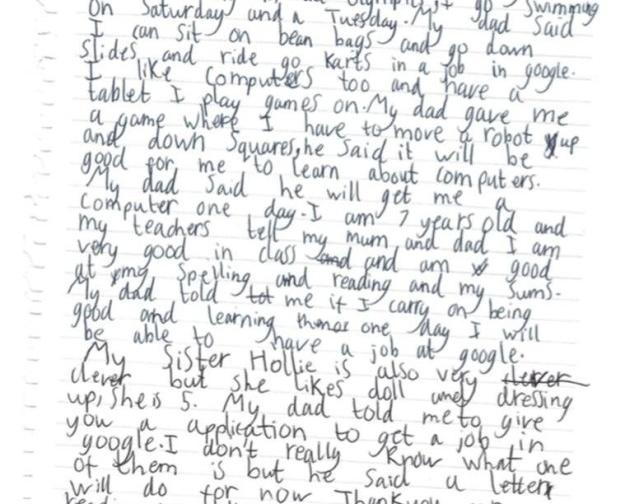 Olympics + go swimming
On Saturday and a Tuesday. My dad Said
I can sit on bean bags and go down
slides and ride go karts in a job in google.
I like Computers too and have a
tablet I play games on. My dad gave me
a game where I have to move a robot up
and down Squares, he Said it will be
good for me to learn about computers.
My dad Said he will get me a
Computer one day. I am 7 years old and
my teachers tell my mum and dad I am
very good in class and and am good
at my Spelling and reading and my Sums.
My dad told me if I carry on being
good and learning things one day I will
be able to have a job at google.
My Sister Hollie is also very clever
clever but she likes doll and dressing
up, she is 5. My dad told me to give
you a application to get a job in
google. I don't really Know what one
of them is but he Said a letter
will do for now Thankyou